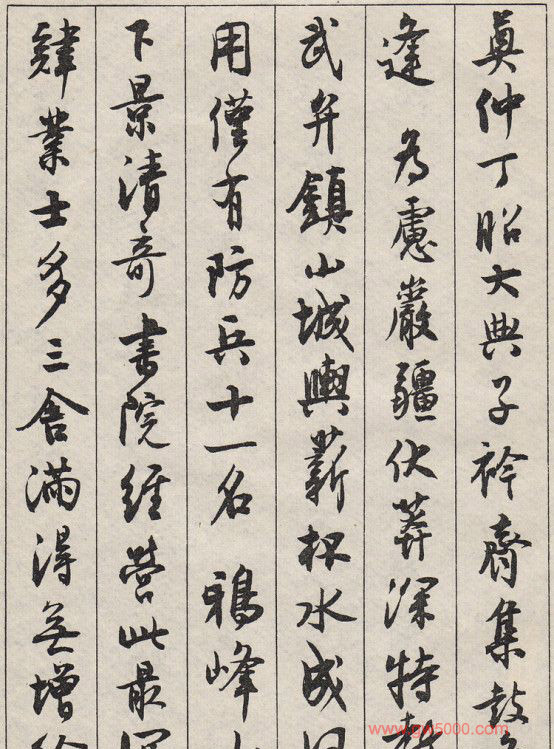 真仲丁昭大典子衿齊集鼓
逢 為慮巖疆伏莽深特
武弁鎮山城輿薪杯水成何
用僅有防兵十一名 鴉峰
下景清奇書院經營此最
肄業士多三舍滿得無增
www.gw5000.com